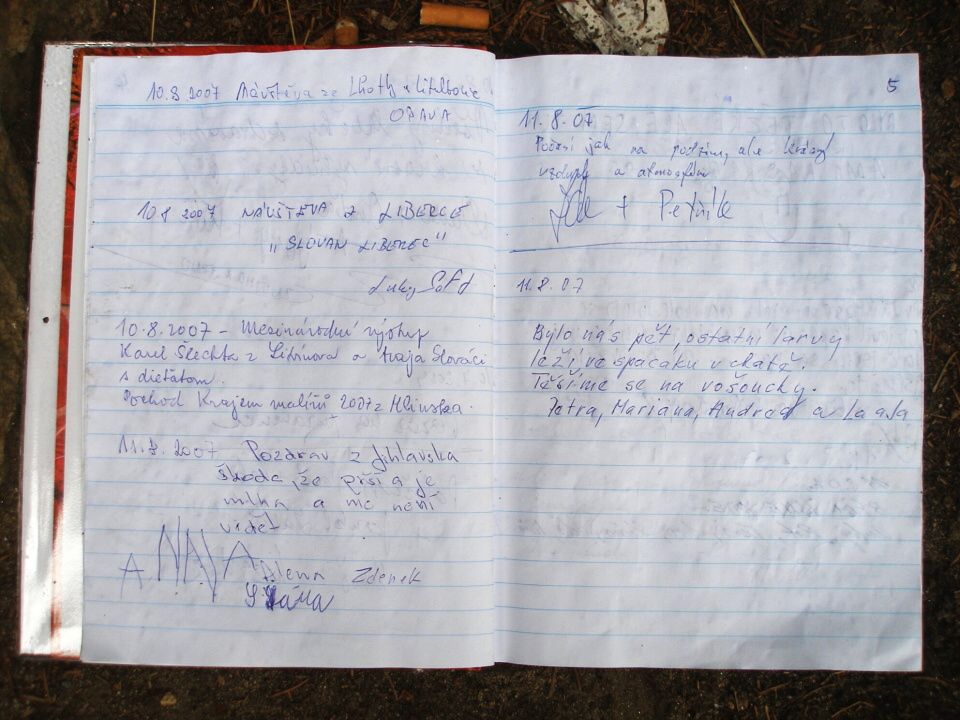 10.8 2007 Návštěva ze Lhotky u Litultovic
OPAVA
10.8 2007 NÁVŠTĚVA Z LIBERCE
„SLOVAN LIBEREC"
10.8.2007 – Mezinárodní výstup
Karel Šlechta z Libínova a traja Slováci
s dieťatom.
Pochod Krajem malířů 2007 z Hlinska.
11.8. 2007 Pozdrav z Jihlavska
škoda, že prší a je
mlha a nic není
vidět
ANNA Alena Zdenek
5
11.8.07
Počasí jak na podzim, ale krásný
vzduch a atmosféra
+ Peťulka
11.8.07
Bylo nás pět, ostatní larvy
leží ve spacáku v chatě.
Těšíme se na vošouchy.
Petra, Mariana, Andrea a Laďa